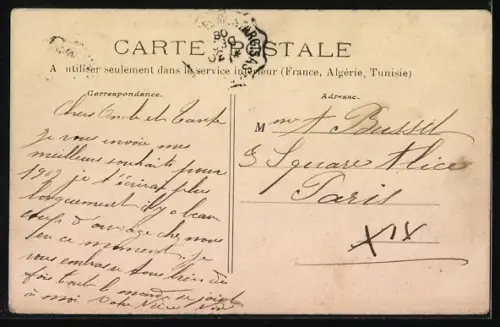 CARTE POSTALE
A utiliser seulement dans le service intérieur (France, Algérie, Tunisie)
Correspondance.
Adresse.
Chers Oncle et Tante
Je vous envoie mes
meilleurs souhaits pour
1909 je t'écrirai plus
longuement il y a beau
coup d'ouvrage chez nous
en ce moment. je
vous embrasse tous bien de
fois tout le monde se joint
à moi Votre Nièce
Mme A Bussil
3 Square Alice
Paris
XIV